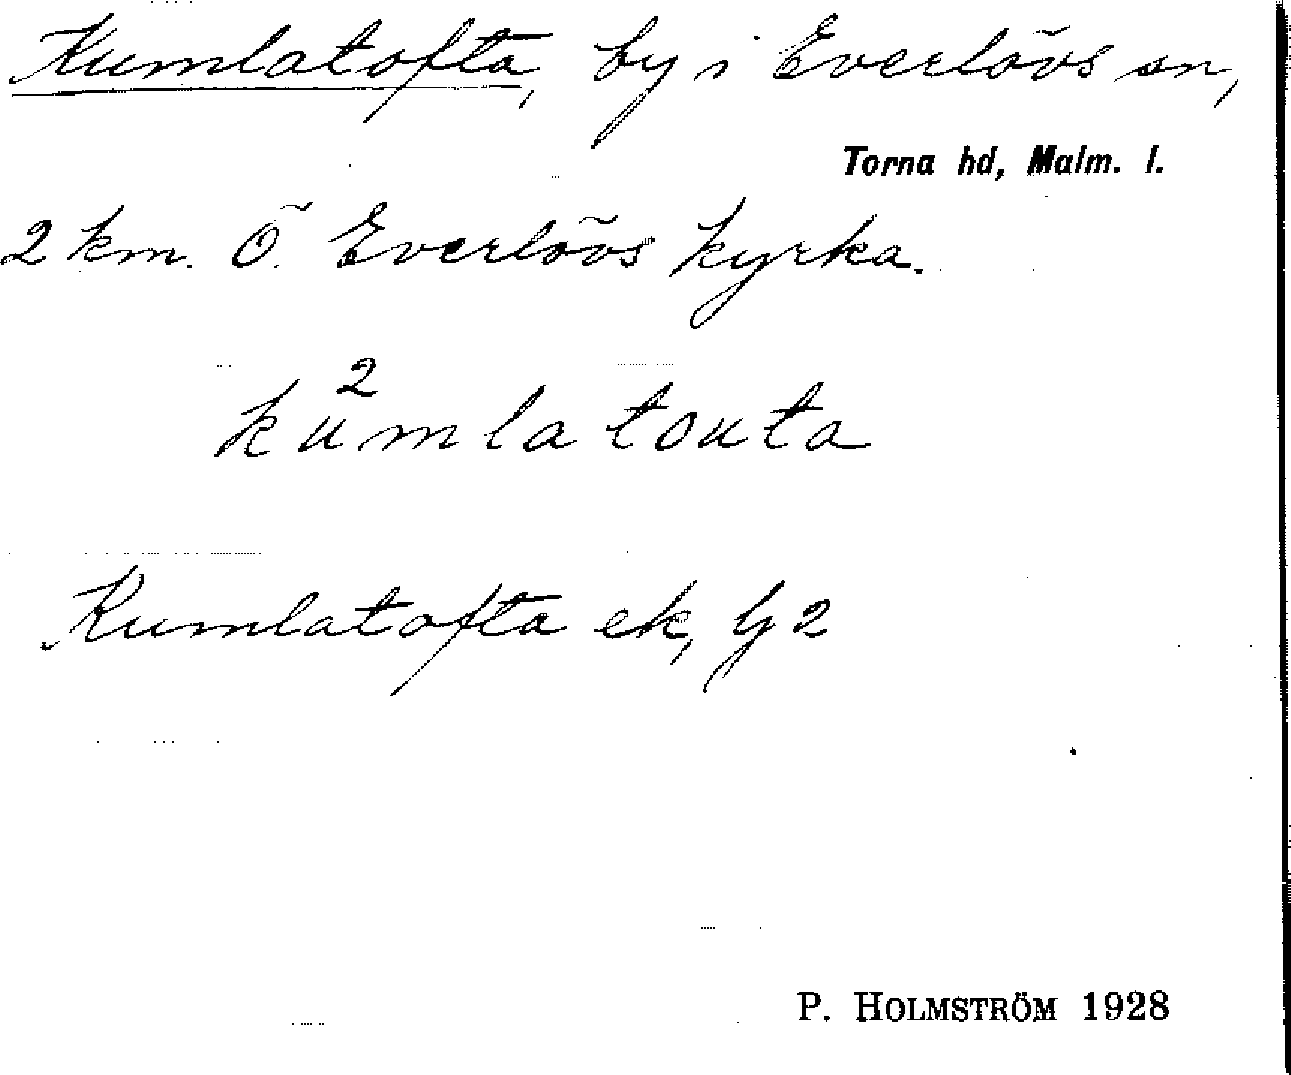 Kumlatofta, by i Everlövs sn,
Torna hd, Malm. l.
2 km. Ö. Everlövs kyrka.
ku²mlatouta
Kumlatofta ek, bl 2
P. HOLMSTRÖM 1928